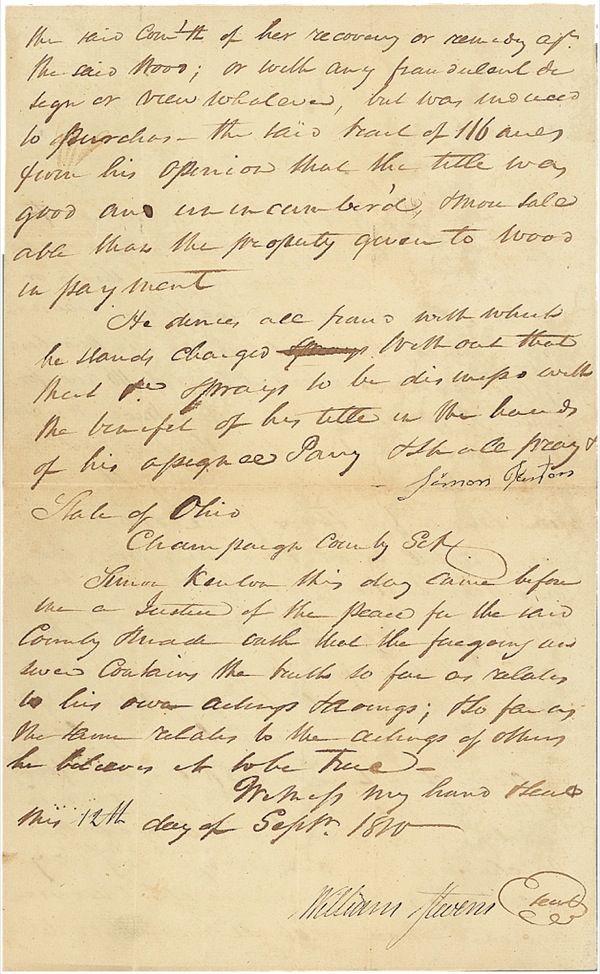 the said Comth of her recovery or remedy agt.
the said Wood; or with any fraudulent de
sign or view whatever, but was induced
to purchas- the said tract of 116 acres
from his opinion that the title was
good and unincumber'd, & more sale
able than the property given to Wood
in payment
He denies all fraud with which
he stands charged Without that
that he prays to be dismiss with
the benefit of his title in the hands
of his assignee Parry & shall pray &
Simon Kenton
State of Ohio
Champaign County Sct
Simon Kenton this day came before
me a Justice of the peace for the said
County & made oath that the foregoing an
swer Contains the truth so far as relates
to his own actings & doings; & so far as
the same relates to the actings of others
he believes it to be True-
Witness my hand & seal
this 12th day of Septr. 1810
William Stevens seal